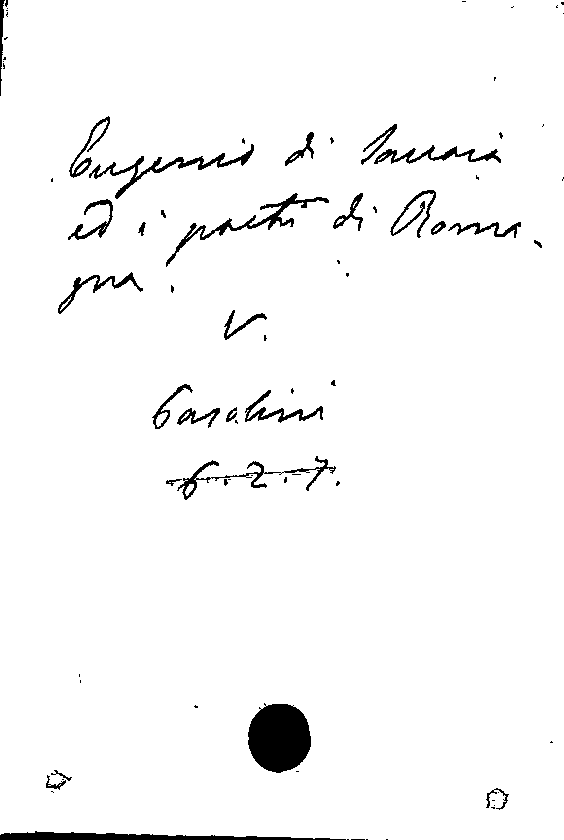 Eugenio di Savoia
ed i poeti di Roma-
gna.
V.
Gasolini
6.2.7.